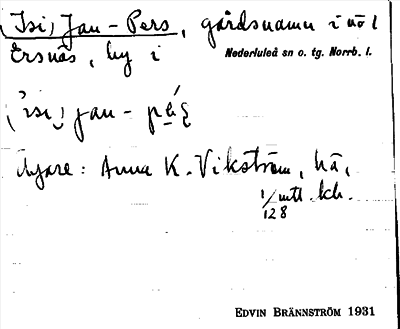 (Isi) Jan-Pers, gårdsnamn i nö l
Ersnäs, by i Nederluleå sn o. tg. Norrb. l.
Ägare: Anna K. Vikström, hä,
1/128 mtl kr.
EDVIN BRÄNNSTRÖM 1931